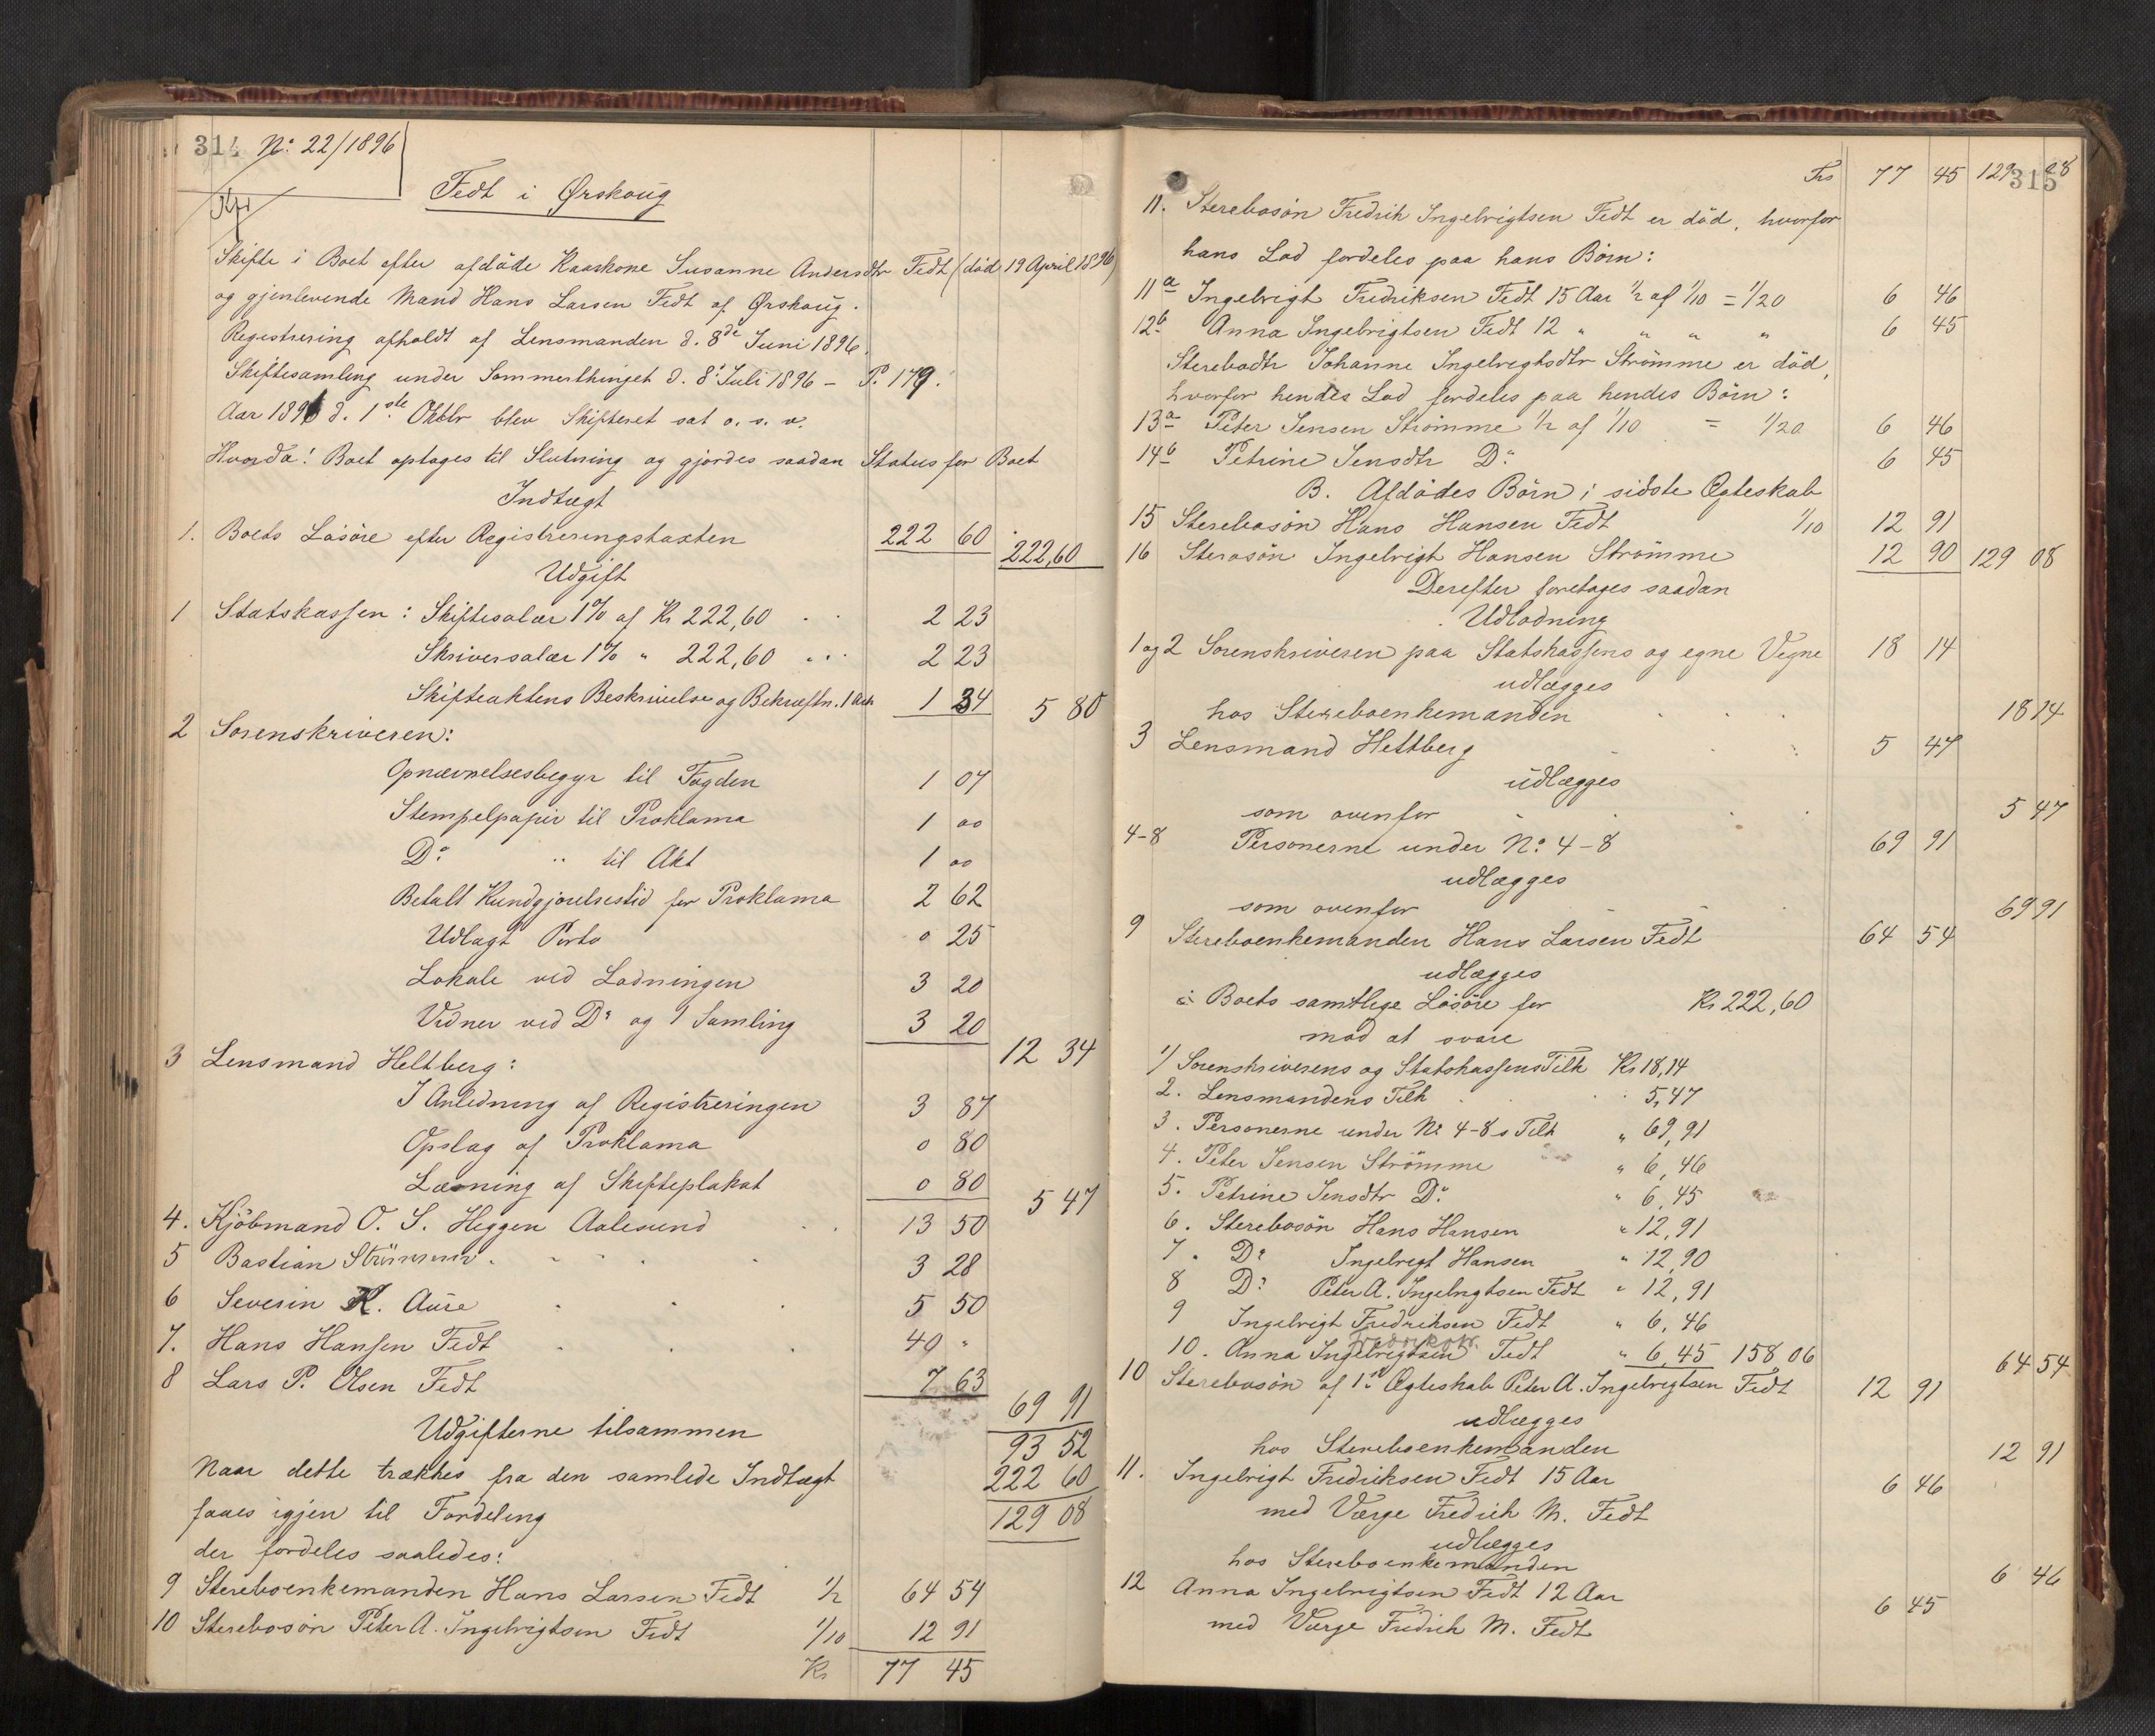 314 No. 22/1896
Fedt i Ørskoug
Skifte i Boet efter afdöde Kaarkone Susanne Andersdtr Fedt (död 19 April 1896)
og gjenlevende Mand Hans Larsen Fedt af Ørskoug.
Registrering afholdt af Lensmanden d. 8de Juni 1896.
Skiftesamling under Sommerthinget d. 8' Juli 1896 – P. 179.
Aar 1896 d. 1ste Oktbr blev Skifteret sat o. s. v.
Hvorda! Boet optages til Slutning og gjordes saadan Status for Boet
Indtægt
1. Boets Lösöre efter Registreringstaxten 222 60 222,60
Udgift
1 Statskassen: Skiftesalær 1% af Kr 222,60 2 23
Skriversalær 1% " 222,60 2 23
Skifteaktens Beskrivelse og Bekræftn. 1 Ark 1 34 5 80
2 Sorenskriveren:
Opnævnelsesbegjr til Fogden 1 07
Stempelpapir til Proklama 1 00
Do " til Akt 1 00
Betalt Kundgjorelsestid for Proklama 2 62
Udlagt Porto 0 25
Lokale ved Lodningen 3 20
Vidner ved Do og 1 Samling 3 20
12 34
3 Lensmand Heltberg:
I Anledning af Registreringen 3 87
Opslag af Proklama 0 80
Læsning af Skifteplakat 0 80 5 47
4. Kjöbmand O. S. Heggen Aalesund 13 50
5 Bastian Strömme 3 28
6 Severin K. Aure 5 50
7. Hans Hansen Fedt 40 "
8 Lars P. Olsen Fedt 7 63
69 91
Udgifterne tilsammen 93 52
Naar dette trækkes fra den samlede Indtægt 222 60
faaes igjen til Fordeling 129 08
der fordeles saaledes:
9 Stereboenkemanden Hans Larsen Fedt 1/2 64 54
10 Sterebosön Peter A. Ingebrigtsen Fedt 1/10 12 91
Kr 77 45
315
Trs 77 45 129 08
11. Sterebosön Fredrik Ingebrigtsen Fedt er död, hvorfor
hans Lod fordeles paa hans Börn:
11a Ingebrigt Fredriksen Fedt 15 Aar 1/2 af 1/10 = 1/20 6 46
12b Anna Ingebrigtsen Fedt 12 " " " " 6 45
Sterebodtr Johanne Ingebrigtsdtr Strömme er död,
hvorfor hendes Lod fordeles paa hendes Börn:
13a Peter Jensen Strömme 1/2 af 1/10 = 1/20 6 46
14b Petrine Jensdtr Do 6 45
B. Afdödes Börn i sidste Ægteskab
15 Sterebosön Hans Hansen Fedt 1/10 12 91
16 Sterosön Ingebrigt Hansen Strömme 12 90 129 08
Derefter foretages saadan
Udlodning
1 og 2 Sorenskriveren paa Statskassens og egne Vegne 18 14
udlægges
hos Stereboenkemanden 18 14
3 Lensmand Heltberg 5 47
udlægges
som ovenfor 5 47
4-8 Personerne under No 4-8 69 91
udlægges
som ovenfor 69 91
9 Stereboenkemanden Hans Larsen Fedt 64 54
udlægges
i Boets samtlige Lösöre for Kr 222,60
mod at svare
1) Sorenskriverens og Statskassens Tilh Kr 18,14
2. Lensmandens Tilh 5,47
3. Personerne under No 4-8s Tilh " 69,91
4. Peter Jensen Strömme " 6,46
5. Petrine Jensdtr Do " 6,45
6. Sterebosön Hans Hansen " 12,91
7. Do Ingebrigt Hansen " 12,90
8 Do Peter A. Ingebrigtsen Fedt " 12,91
9 Ingebrigt Fredriksen Fedt " 6,46
Fredriksdtr.
10. Anna Ingebrigtsen Fedt " 6,45 158,06
64 54
10 Sterebosön af 1ste Ægteskab Peter A. Ingebrigtsen Fedt 12 91
udlægges
hos Stereboenkemanden 12 91
11. Ingebrigt Fredriksen Fedt 15 Aar 6 46
med Værge Fredrik M. Fedt
udlægges
hos Stereboenkemanden 6 46
12 Anna Ingebrigtsen Fedt 12 Aar 6 45
med Værge Fredrik M. Fedt